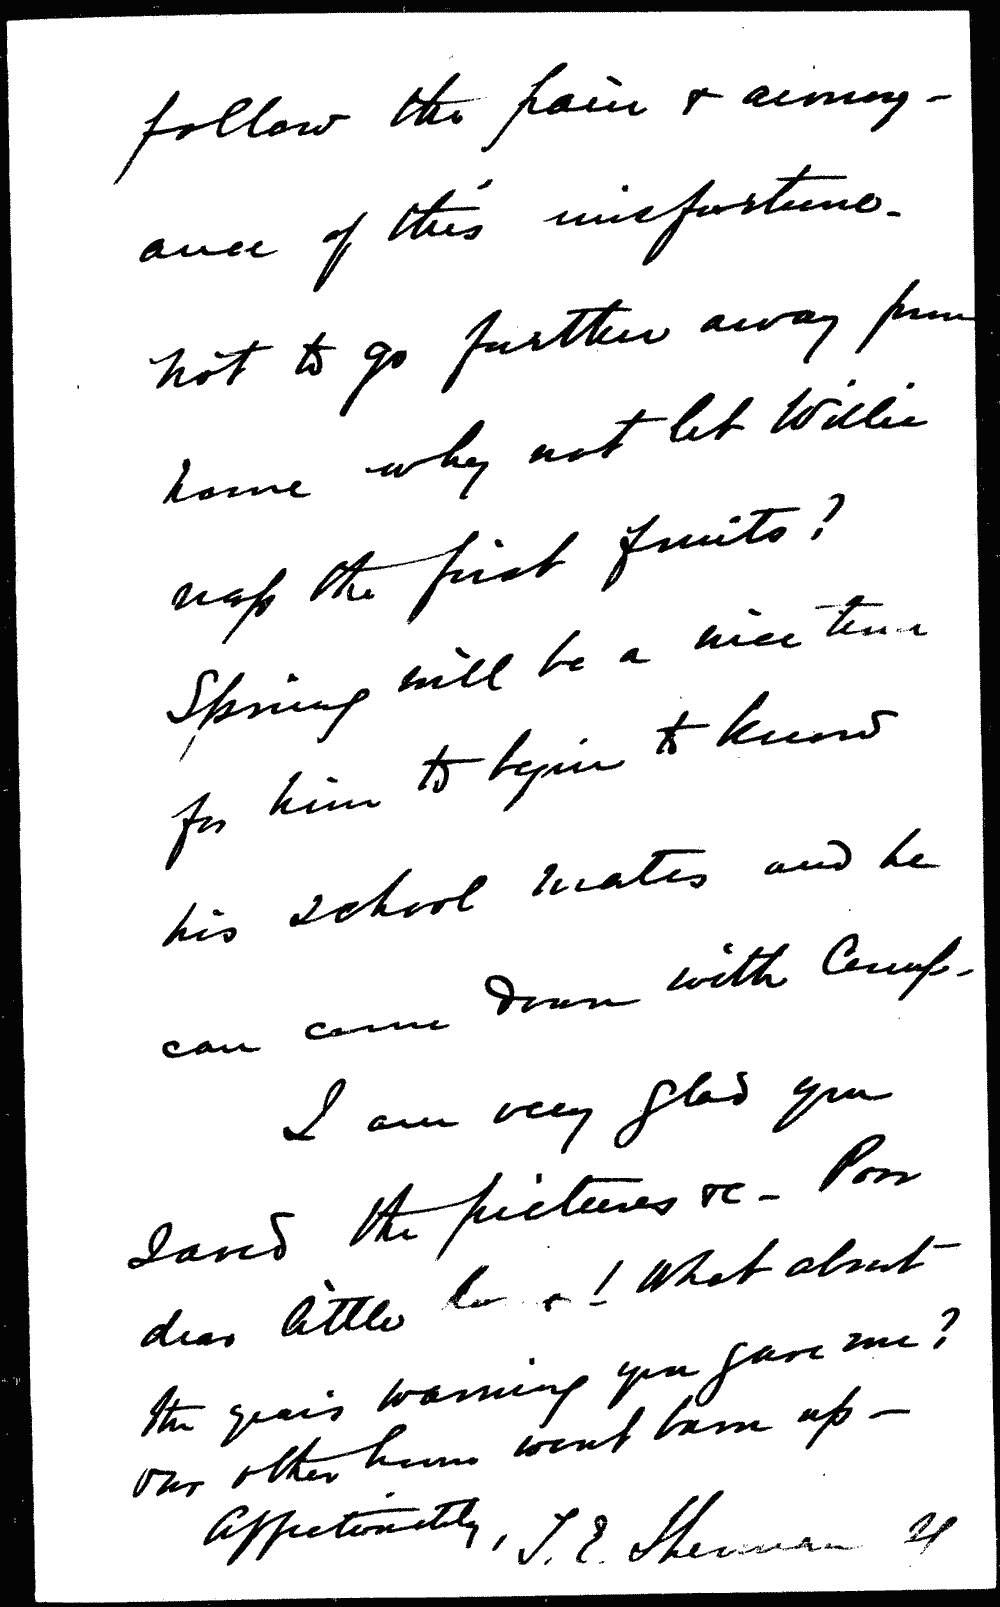 follow the pain & annoy-
ance of this misfortune.
not to go further away from
home why not let Willie
reap the first fruits?
Spring will be a nice time
for him to begin to know
his school mates and he
can come down with Cump.
I am very glad you
saved the pictures &c - Poor
dear little ! What about
the years warning you gave me?
our other home went burn up -
Affectionately, T. E. Sherman